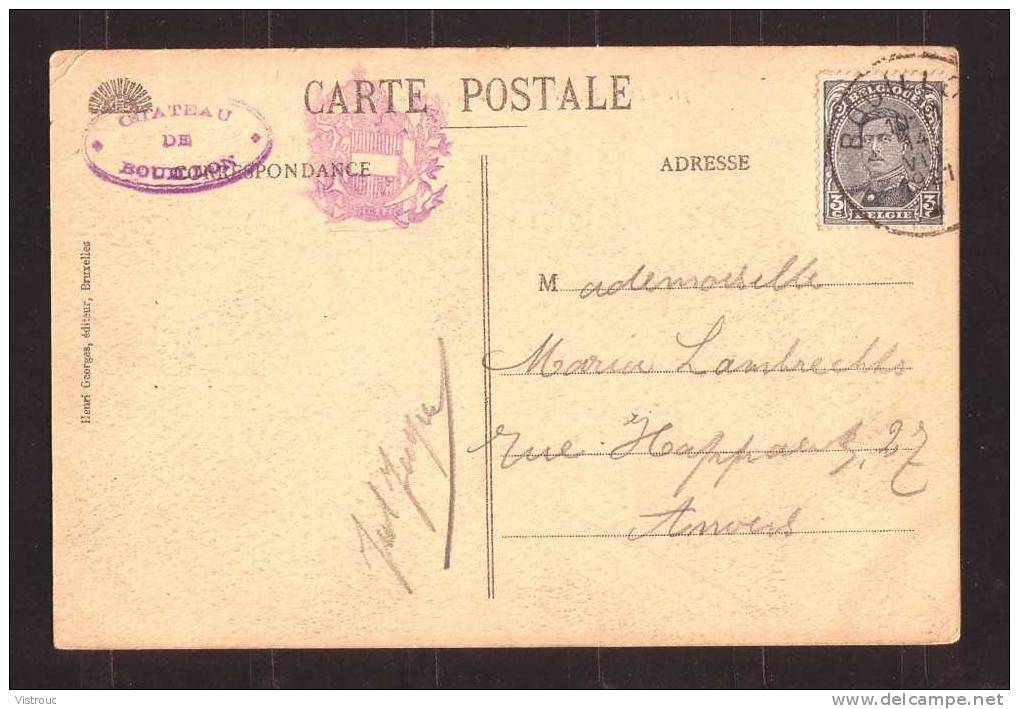 CARTE POSTALE
CHATEAU
DE
BOUILLON
CORRESPONDANCE
ADRESSE
BELGIQUE
3 3
BELGIË
Henri Georges, éditeur, Bruxelles
Mademoiselle
Maria Lambrechts
rue Happaerts, 27
Anvers
Vistrouc
delcampe.net